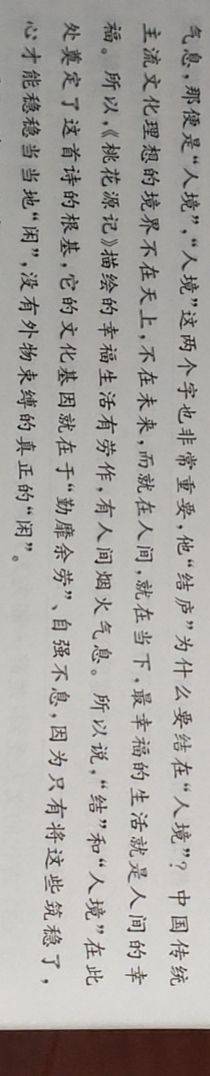 气息，那便是“人境”，“人境”这两个字也非常重要，他“结庐”为什么要结在“人境”？中国传统
主流文化理想的境界不在天上，不在未来，而就在人间，就在当下，最幸福的生活就是人间的幸
福。所以，《桃花源记》描绘的幸福生活有劳作，有人间烟火气息。所以说，“结”和“人境”在此
处奠定了这首诗的根基，它的文化基因就在于“勤靡余劳”、自强不息，因为只有将这些筑稳了，
心才能稳稳当当地“闲”，没有外物束缚的真正的“闲”。